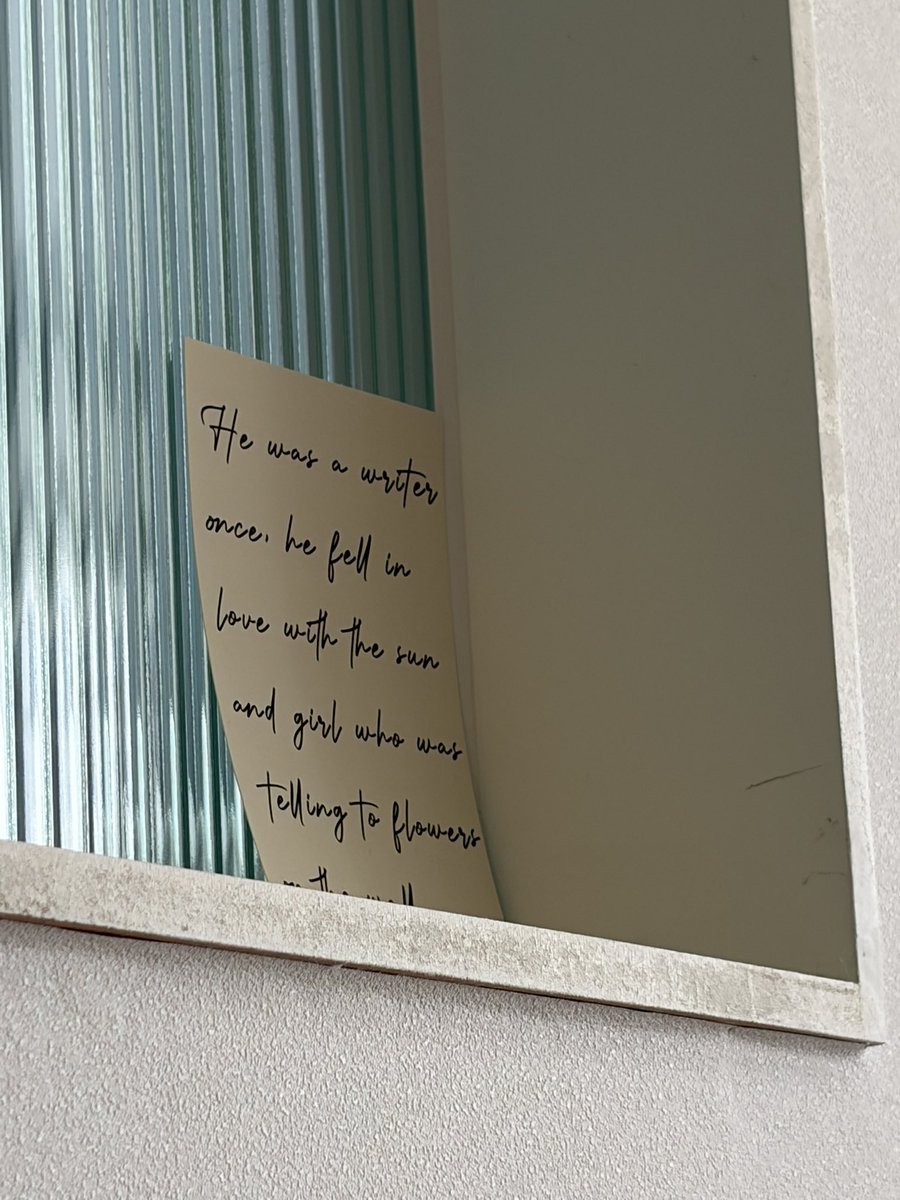 He was a writer
once, he fell in
love with the sun
and girl who was
telling to flowers
the